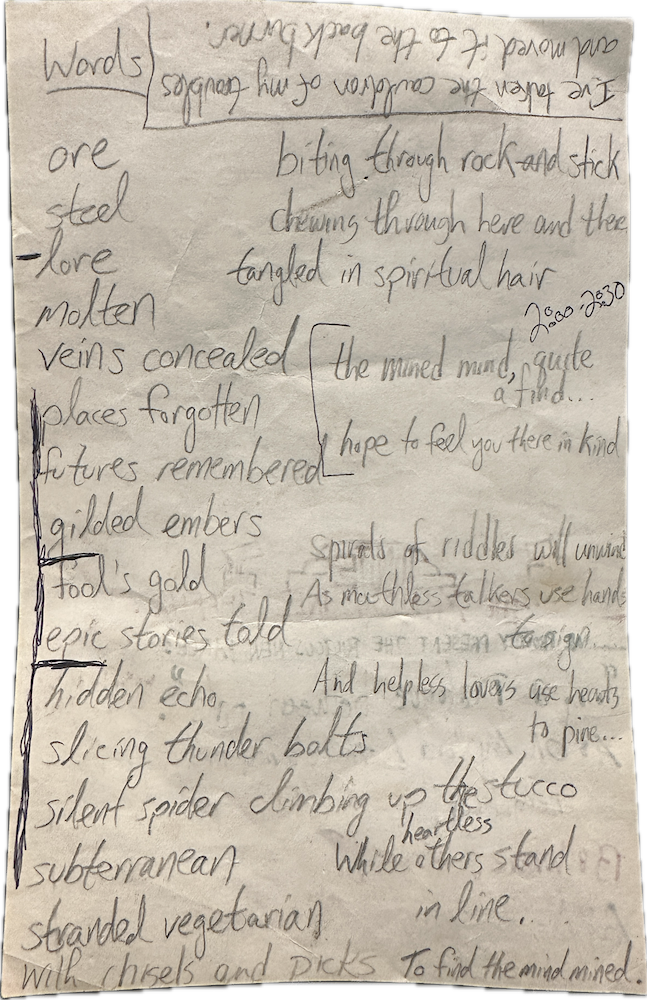 Words
I've taken the cauldron of my troubles
and moved it to the back burner.
ore
steel
lore
molten
veins concealed
places forgotten
futures remembered
gilded embers
fool's gold
epic stories told
hidden echo
slicing thunder bolts
silent spider climbing up the stucco
subterranean
stranded vegetarian
with chisels and picks
biting through rock and stick
chewing through here and there
tangled in spiritual hair
2000-2030
the mined mind, quite
a find...
hope to feel you there in kind
Spirals of riddles will unwind
As mouthless talkers use hands
to sign...
And helpless lovers use hearts
to pine...
While heartless others stand
in line..
To find the mind mined.